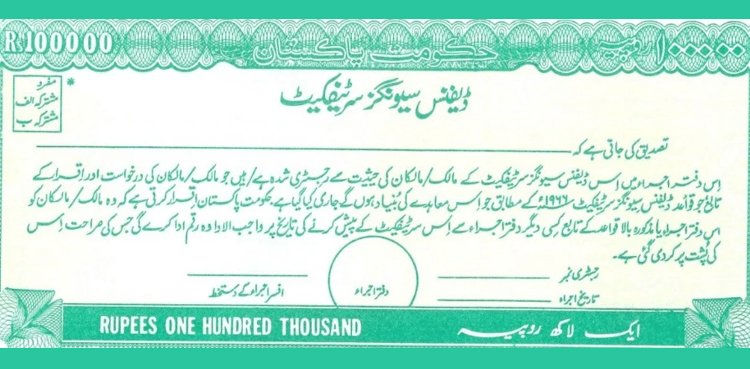 R.100000 حکومت پاکستان ۱۰۰۰۰۰ روپیہ
* منفرد
مشترکہ الف
مشترکہ ب
ڈیفنس سیونگز سرٹیفکیٹ
تصدیق کی جاتی ہے کہ
اِس دفتر اجراء میں اِس ڈیفنس سیونگز سرٹیفکیٹ کے مالک/مالکان کی حیثیت سے رجسٹری شدہ ہے/ہیں جو مالک/مالکان کی درخواست اور اقرار کے
تابع جو قواعد ڈیفنس سیونگز سرٹیفکیٹ ۱۹۶۶ء کے مطابق جو اِس معاہدے کی بُنیاد ہوں گے جاری کیا گیا ہے۔ حکومت پاکستان اقرار کرتی ہے کہ وہ مالک/مالکان کو
اس دفتر اجراء یا مذکورہ بالا قواعد کے تابع کسی دیگر دفتر اجراء سے اِس سرٹیفکیٹ کے پیش کرنے کی تاریخ پر واجب الادا وہ رقم ادا کرے گی جس کی صراحت اِس
کی پُشت پر کر دی گئی ہے۔
رجسٹری نمبر
تاریخ اجراء
دفتر اجراء
افسر اجراء کے دستخط
RUPEES ONE HUNDRED THOUSAND ایک لاکھ روپیہ